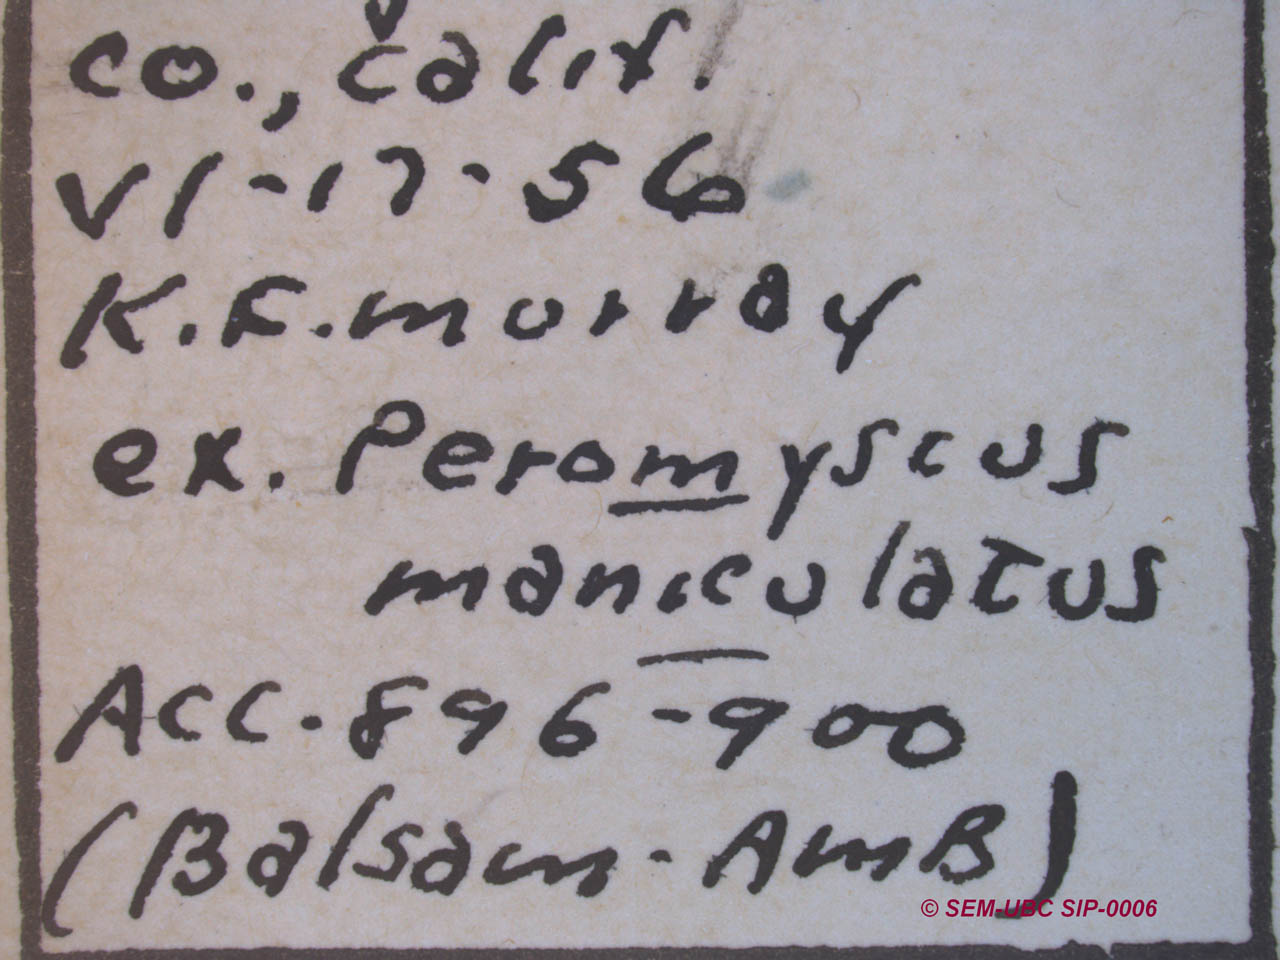 co., Calif.
VI-17-56
K.F. Murray
ex. Peromyscus
maniculatus
Acc. 896-900
(Balsam-AmB)
© SEM-UBC SIP-0006